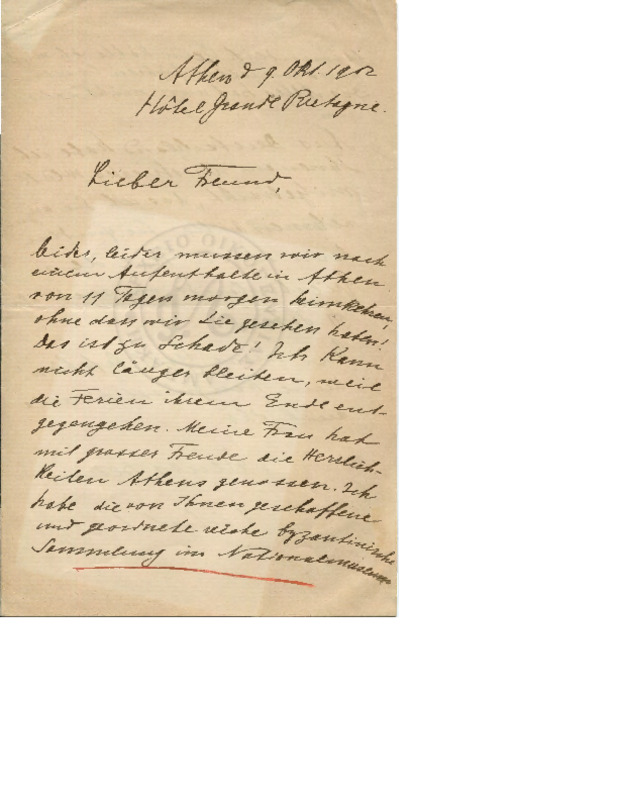 Athen d 9. Okt. 1902
Hôtel Grande Bretagne.
Lieber Freund,
leider, leider müssen wir nach
einem Aufenthalte in Athen
von 11 Tagen morgen heimkehren,
ohne dass wir Sie gesehen haben!
Das ist zu Schade! Ich kann
nicht länger bleiben, weil
die Ferien ihrem Ende ent-
gegengehen. Meine Frau hat
mit grosser Freude die Herrlich-
keiten Athens genossen. Ich
habe die von Ihnen geschaffene
und geordnete reiche byzantinische
Sammlung im Nationalmuseum